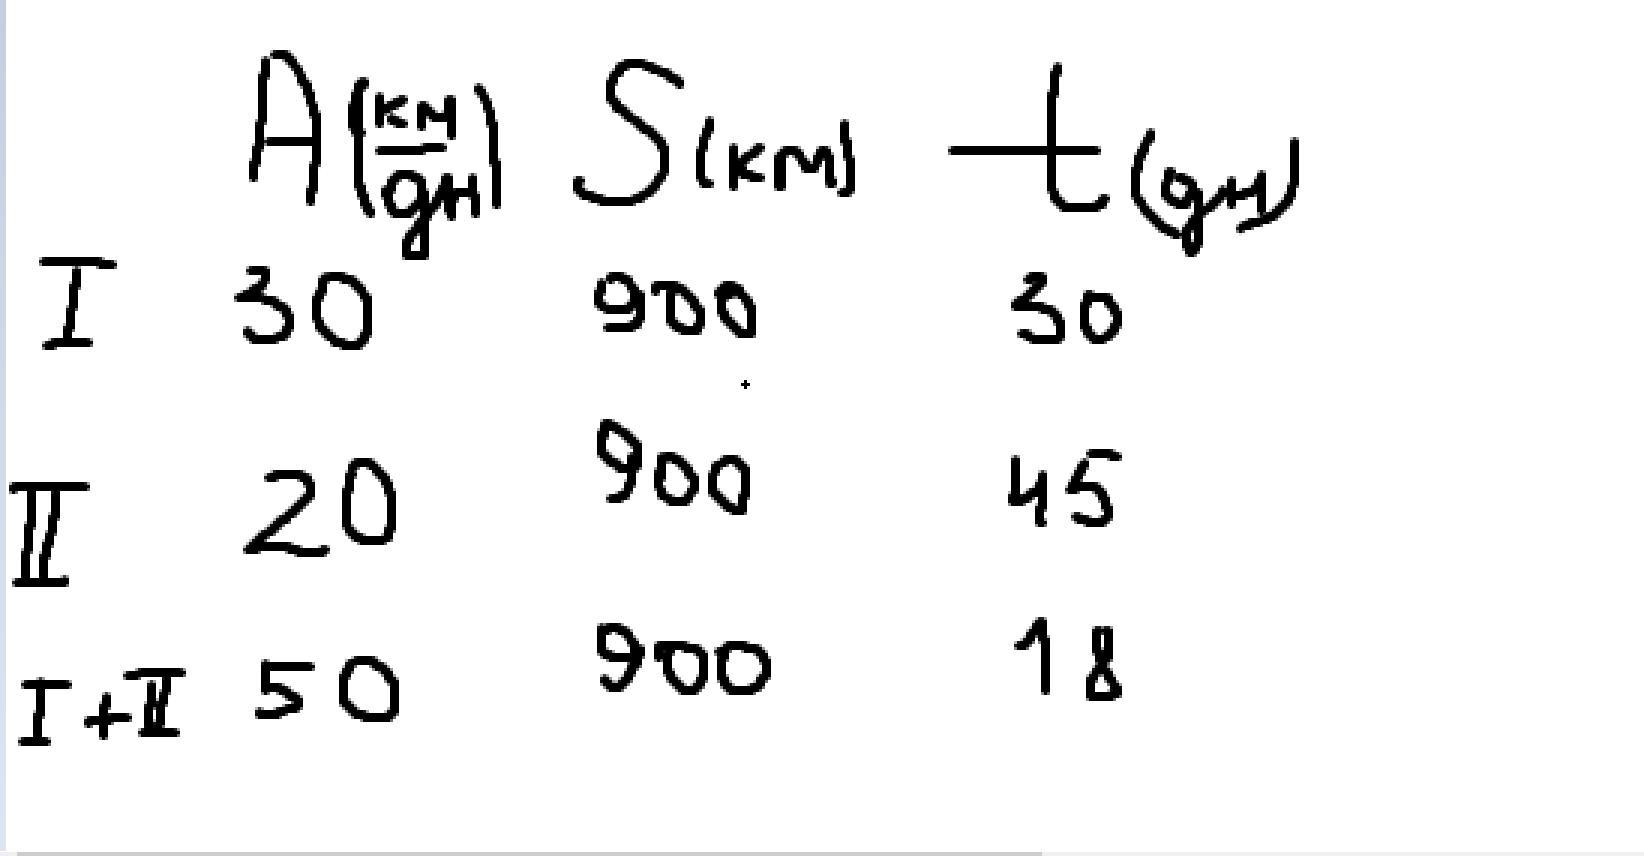 A (км/дн) S (км) t (дн)
I 30 900 30
II 20 900 45
I+II 50 900 18